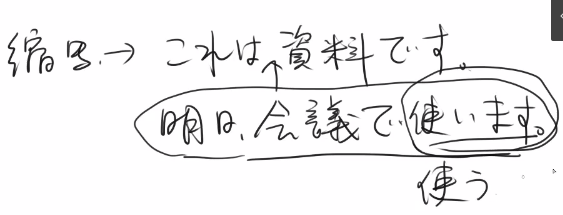 縮写→これは資料です。
明日、会議で使います。
使う